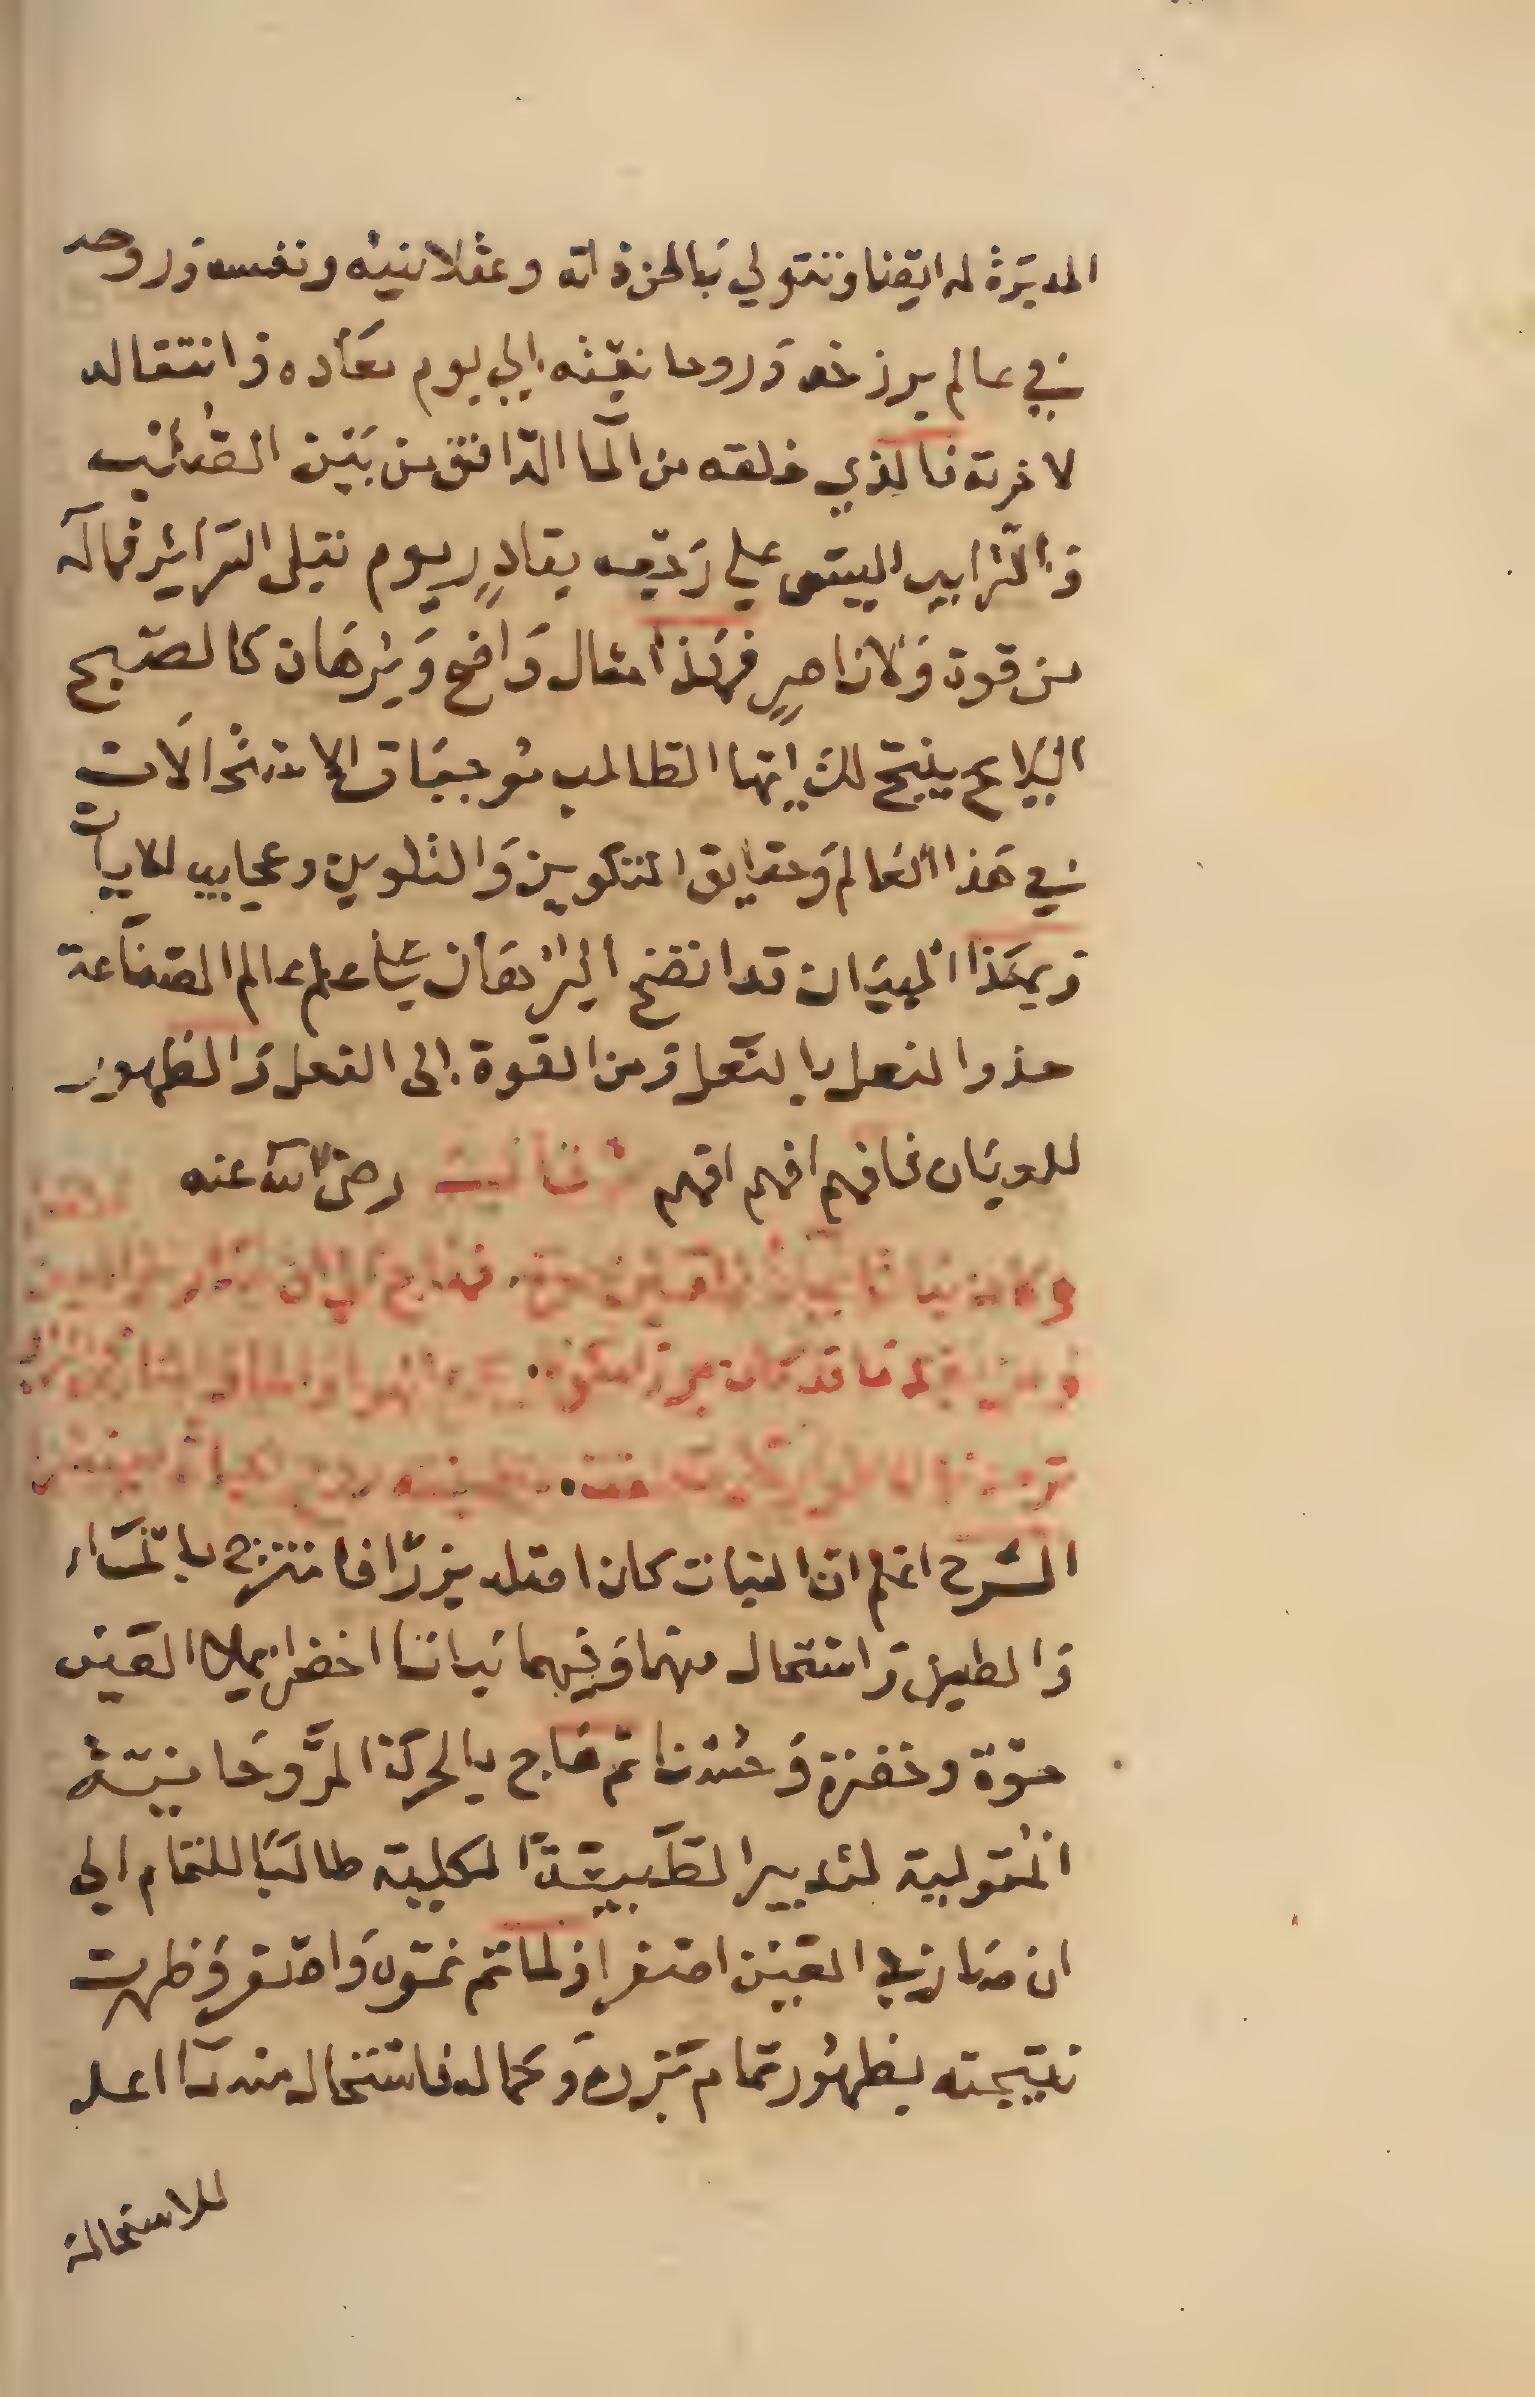 المدبرة له ايضا وتتولي بباطن ذاته وعقلانيته ونفسه وروحه
في عالم برزخه وروحانيته الي يوم معاده وانتقاله
لاخرته فالذي خلقه من الما الدافق من بين الصلب
والترايب اليس علي رجعه بقادرٍ يوم تبلى السراير فماله
من قوة ولا ناصرٍ فهذا مثال واضح وبرهان كالصبح
اللايح ينتج لك ايها الطالب موجبات الاستحالات
في هذا العالم وحقايق التكوين والتلوين وعجايب الايات
وبهذا الميزان قد اتضح البرهان علي علم عالم الصناعة
حذو النعل بالنعل ومن القوة الى الفعل والظهور
للعيان فافهم افهم افهم قال رضي الله عنه
الشرح اعلم ان النبات كان اصله بزرًا فامتزج بالماء
والطين واستحال منهما وفيهما نباتا اخضرا يملا العين
قوة وخضرة وحسنا ثم هاج بالحركة الروحانية
المتولية لتدبير الطبيعة الكلية طالبًا للتمام الي
ان صار في العين اصفرا ولما تم نموه واصفر وظهرت
نتيجته بظهور تمام بزره وكماله فاستحال مبدا اعلا
للاستحالة